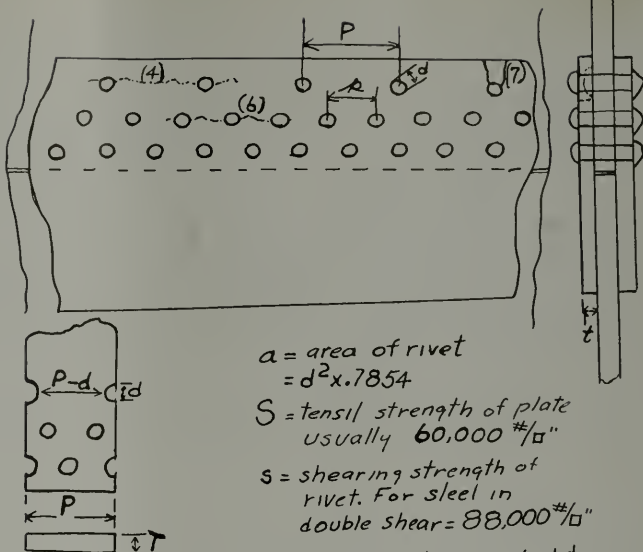 P
(4)
d
(7)
(6)
p
t
P-d
d
P
T
a = area of rivet
= d²x.7854
S = tensil strength of plate
usually 60,000 #/□"
s = shearing strength of
rivet. For steel in
double shear = 88,000 #/□"